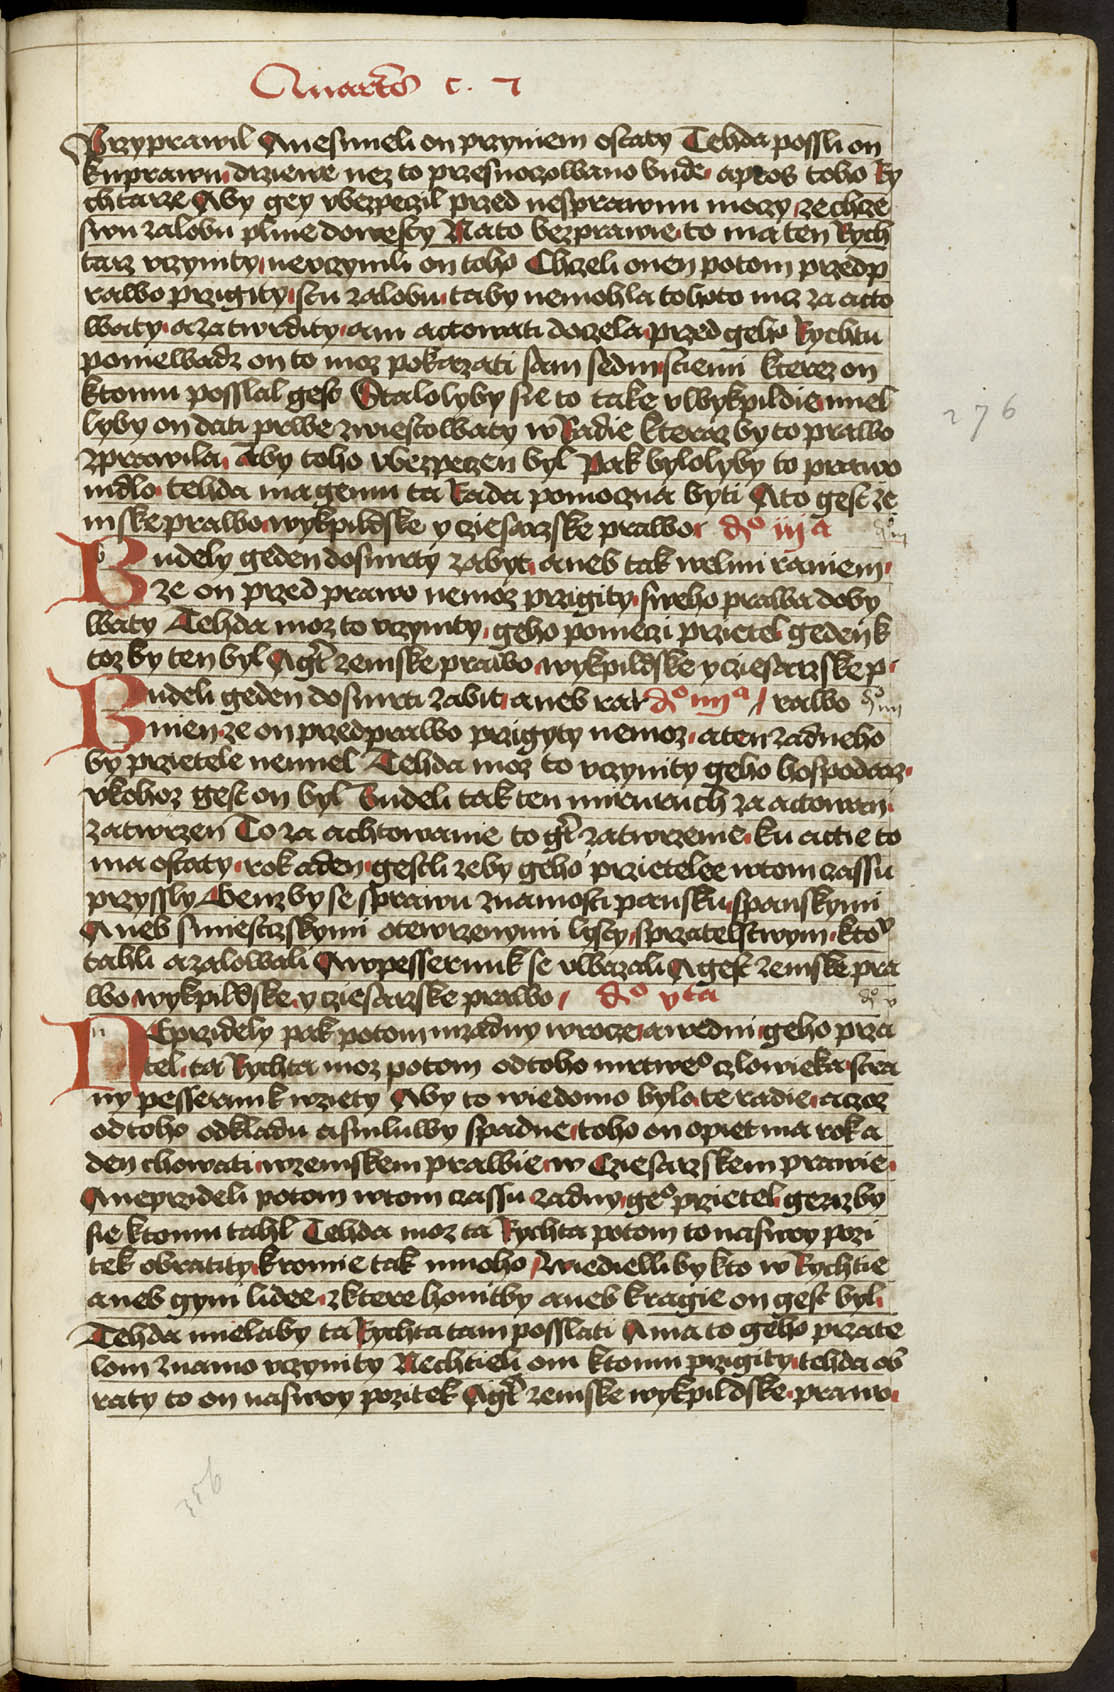 Quartus c. 7
Przyprawil Anesmieli on przyniem ostaty Tehda possli on
kuprawu drziewe nez to przesuoczowano bude apros toho Ry
chtarze Aby gey vbezpeczil przed nesprawnu moczy zechcze
swu zalobu plnie dowesty Nato bezprawie to ma ten Rych
tarz vczynity nevczynili on toho Chczeli onen potom przedp
rawo przigity stu zalobu taby nemohla tohoto nicz za acto
waty azatwrdity ani actowati doczela przed geho Rychtu
poniewadz on to moz pokazati sam sedm sciemi kterez on
ktomu posslal gest Stalolyby sie to take vwykpildie miel
lyby on dati prwe zwiestowaty w Radie kteraz by to prawo
zprawila Aby toho vbezpeczen byl Pak bylolyby to prawo
mdlo tehda ma gemu ta Rada pomoczna byti Ato gest ze
mske prawo wykpildske y cziesarzske prawo do iij a
Budely geden dosmrty zabyt aneb tak welmi raniem
ze on przed prawo nemoz przigity sweho prawa doby
waty Tehda moz to vczynity geho pomeczi przietel geden k
toz by ten byl Agt zemske prawo wykpildske y cziesarzske p
Budeli geden dosmrti zabit aneb ra do iiij a rawo
nien ze on przedprawo przigyty nemoz aten zadneho
by przietele nemiel Tehda moz to vczynity geho hospodarz
vkohoz gest on byl Budeli tak ten mirnruch za actowan
zatwrzen To za achtowanie to gt zatwrzenie ku actie to
ma ostaty rok aden gestli zeby geho przietelee wtom czassu
przyssly Genz by se sprawu znamosti pansku spanskymi
Aneb smiesczskymi otewrzenymi lysty sprzatelstwym kto
tahli azalowali Awpesserunk se vwazali Agest zemske pra
wo wykpildske y cziesarzske prawo do v ta
NEprzidely pak potom nizadny wrocze awedni geho prza
tel ta Rychta moz potom odtoho mrtweo czlowieka stra
ny pesserunk wziety Aby to wiedomo bylo te radie aczoz
odtoho odkladu asmluwy spadne toho on opiet ma rok a
den chowati wzemskem prawie w Cziesarzskem prawie
Aneprzideli potom wtom czassu zadny geo przietel gerzby
sie ktomu tahl Tehda moz ta Rychta potom to naswoy pozi
tek obratity kromie tak mnoho wiedielli by kto w Rychtie
aneb gyni lidee zktere honitby aneb kragie on gest byl
Tehda mielaby ta Rychta tam posslati Ama to geho przate
lom znamo vczynity Nechtieli oni ktomu przigity tehda ob
raty to on naswoy pozitek Agt zemske wykpildske prawo
276
356